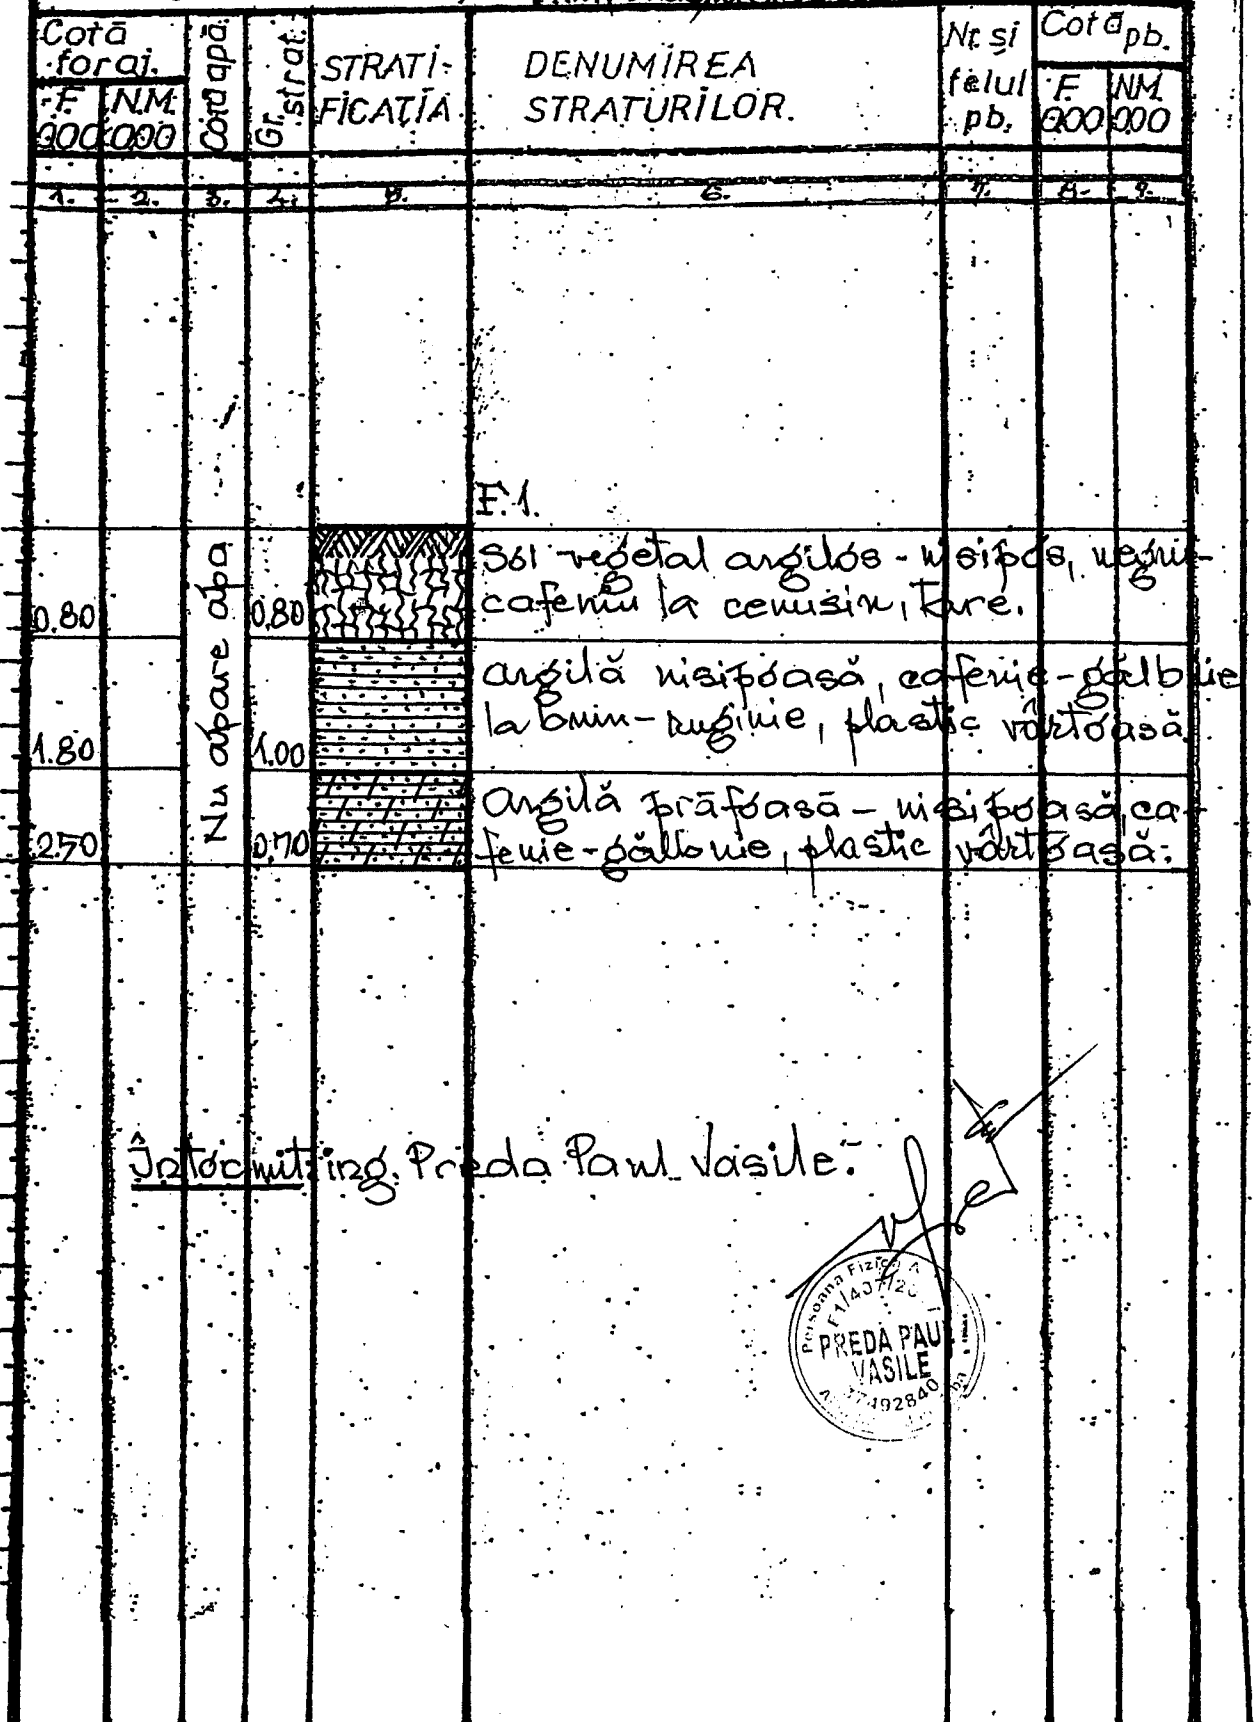 Cotă foraj.
F. 000
N.M. 000
Cotă apă.
Gr. strat.
STRATI-
FICAȚIA
DENUMIREA
STRATURILOR.
Nr. și
felul
pb.
Cotă pb.
F. 000
NM. 000
1. 2. 3. 4. 5. 6. 7. 8. 9.
F.1.
Nu apare apa
0.80 0.80 Sol vegetal argilos - nisipos, negru-
cafeniu la cenusiu, tare.
1.80 1.00 argilă nisipoasă, cafenie-gălbuie
la brun-ruginie, plastic vârtoasă.
2.50 0.70 Argilă prăfoasă - nisipoasă, ca-
fenie-gălbuie, plastic vârtoasă.
Întocmit: ing. Preda Paul Vasile.
Persoana Fizică A
F1/407/20
PREDA PAUL
VASILE